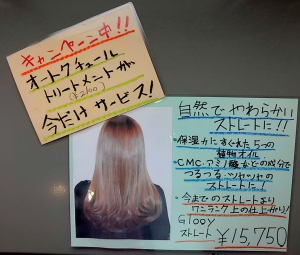 キャンペーン中!!
オートクチュール
トリートメントが
(¥2100)
今だけサービス!
自然でやわらかい
ストレートに!!
・保湿力にすぐれた5つの
植物オイル
・CMC・アミノ酸などの成分で
つるつる・ツヤツヤの
ストレートに!
・今までのストレートより
ワンランク上の仕上がり!
Glooy
ストレート ¥15,750